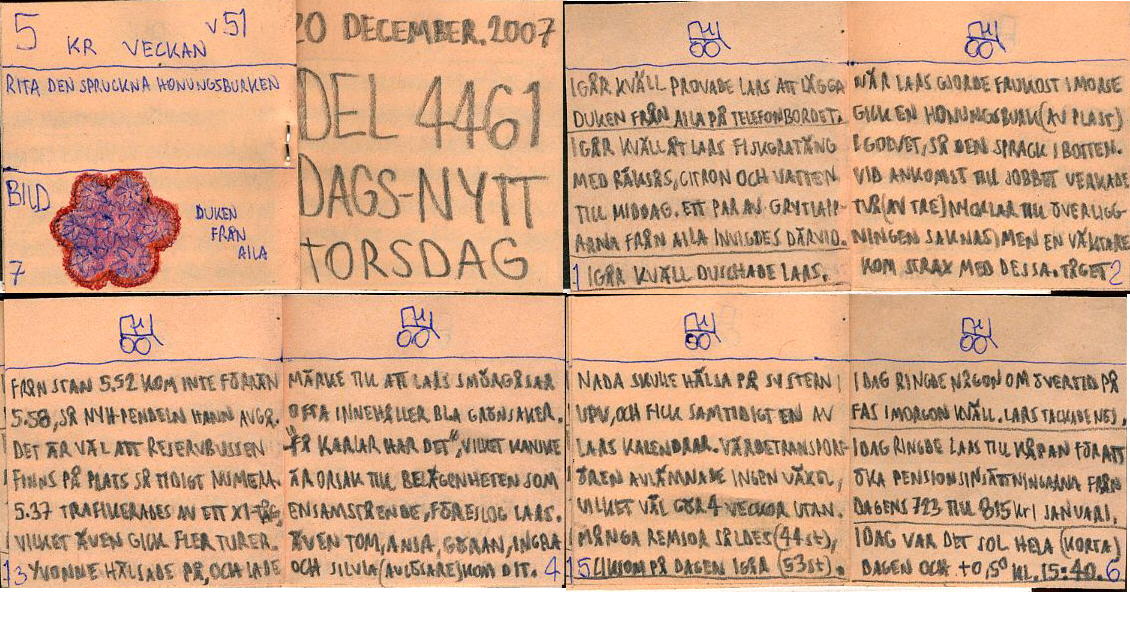 5 KR VECKAN V51
RITA DEN SPRUCKNA HONUNGSBURKEN
BILD
DUKEN
FRÅN
AILA
7
20 DECEMBER. 2007
DEL 4461
DAGS-NYTT
TORSDAG
IGÅR KVÄLL PROVADE LARS ATT LÄGGA
DUKEN FRÅN AILA PÅ TELEFONBORDET.
IGÅR KVÄLL ÅT LARS FISKGRATÄNG
MED RÄKSÅS, CITRON OCH VATTEN
TILL MIDDAG. ETT PAR AV GRYTLAPP-
ARNA FRÅN AILA INVIGDES DÄRVID.
1 IGÅR KVÄLL DUSCHADE LARS.
NÄR LARS GJORDE FRUKOST I MORSE
GICK EN HONUNGSBURK (AV PLAST)
I GOLVET, SÅ DEN SPRACK I BOTTEN.
VID ANKOMST TILL JOBBET VERKADE
TVÅ (AV TRE) NYCKLAR TILL ÖVERLIGG-
NINGEN SAKNAS, MEN EN VÄKTARE
KOM STRAX MED DESSA. TÅGET 2
FRÅN STAN 5.52 KOM INTE FÖRRÄN
5.58, SÅ NYH-PENDELN HANN AVGÅ.
DET ÄR VÄL ATT RESERVBUSSEN
FINNS PÅ PLATS SÅ TIDIGT NUMERA.
5.37 TRAFIKERADES AV ETT X1-TÅG,
VILKET ÄVEN GICK FLER TURER.
3 YVONNE HÄLSADE PÅ, OCH LADE
MÄRKE TILL ATT LARS SMÖRGÅSAR
OFTA INNEHÅLLER BLA GRÖNSAKER.
"FÅ KARLAR HAR DET", VILKET KANSKE
ÄR ORSAK TILL BELÄGENHETEN SOM
ENSAMSTÅENDE, FÖRESLOG LARS.
ÄVEN TOM, ANJA, GÖRAN, INGRA
OCH SILVIA (AVLÖSARE) KOM DIT. 4
NADA SKULLE HÄLSA PÅ SYSTERN I
UPV, OCH FICK SAMTIDIGT EN AV
LARS KALENDRAR. VÄRDETRANSPORT-
ÖREN AVLÄMNADE INGEN VÄXEL,
VILKET VÄL GÖR 4 VECKOR UTAN.
MÅNGA REMSOR SÅLDES (44 st),
5 LIKSOM PÅ DAGEN IGÅR (53 st).
IDAG RINGDE NÅGON OM ÖVERTID PÅ
FAS IMORGON KVÄLL. LARS TACKADE NEJ.
IDAG RINGDE LARS TILL KÅPAN FÖR ATT
ÖKA PENSIONSINSÄTTNINGARNA FRÅN
DAGENS 723 TILL 815 kr I JANUARI.
IDAG VAR DET SOL HELA (KORTA)
DAGEN OCH +0,5° KL. 15:40. 6